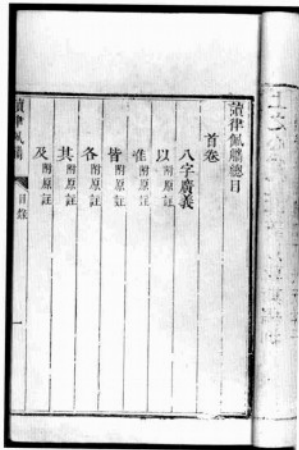 讀律佩觿總目
首卷
八字廣義
以附原註
准附原註
皆附原註
各附原註
其附原註
及附原註
讀律佩觿
目錄
一